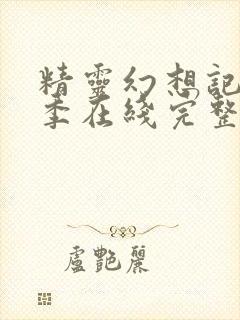 精靈幻想記
季在綫完整
盧艷麗